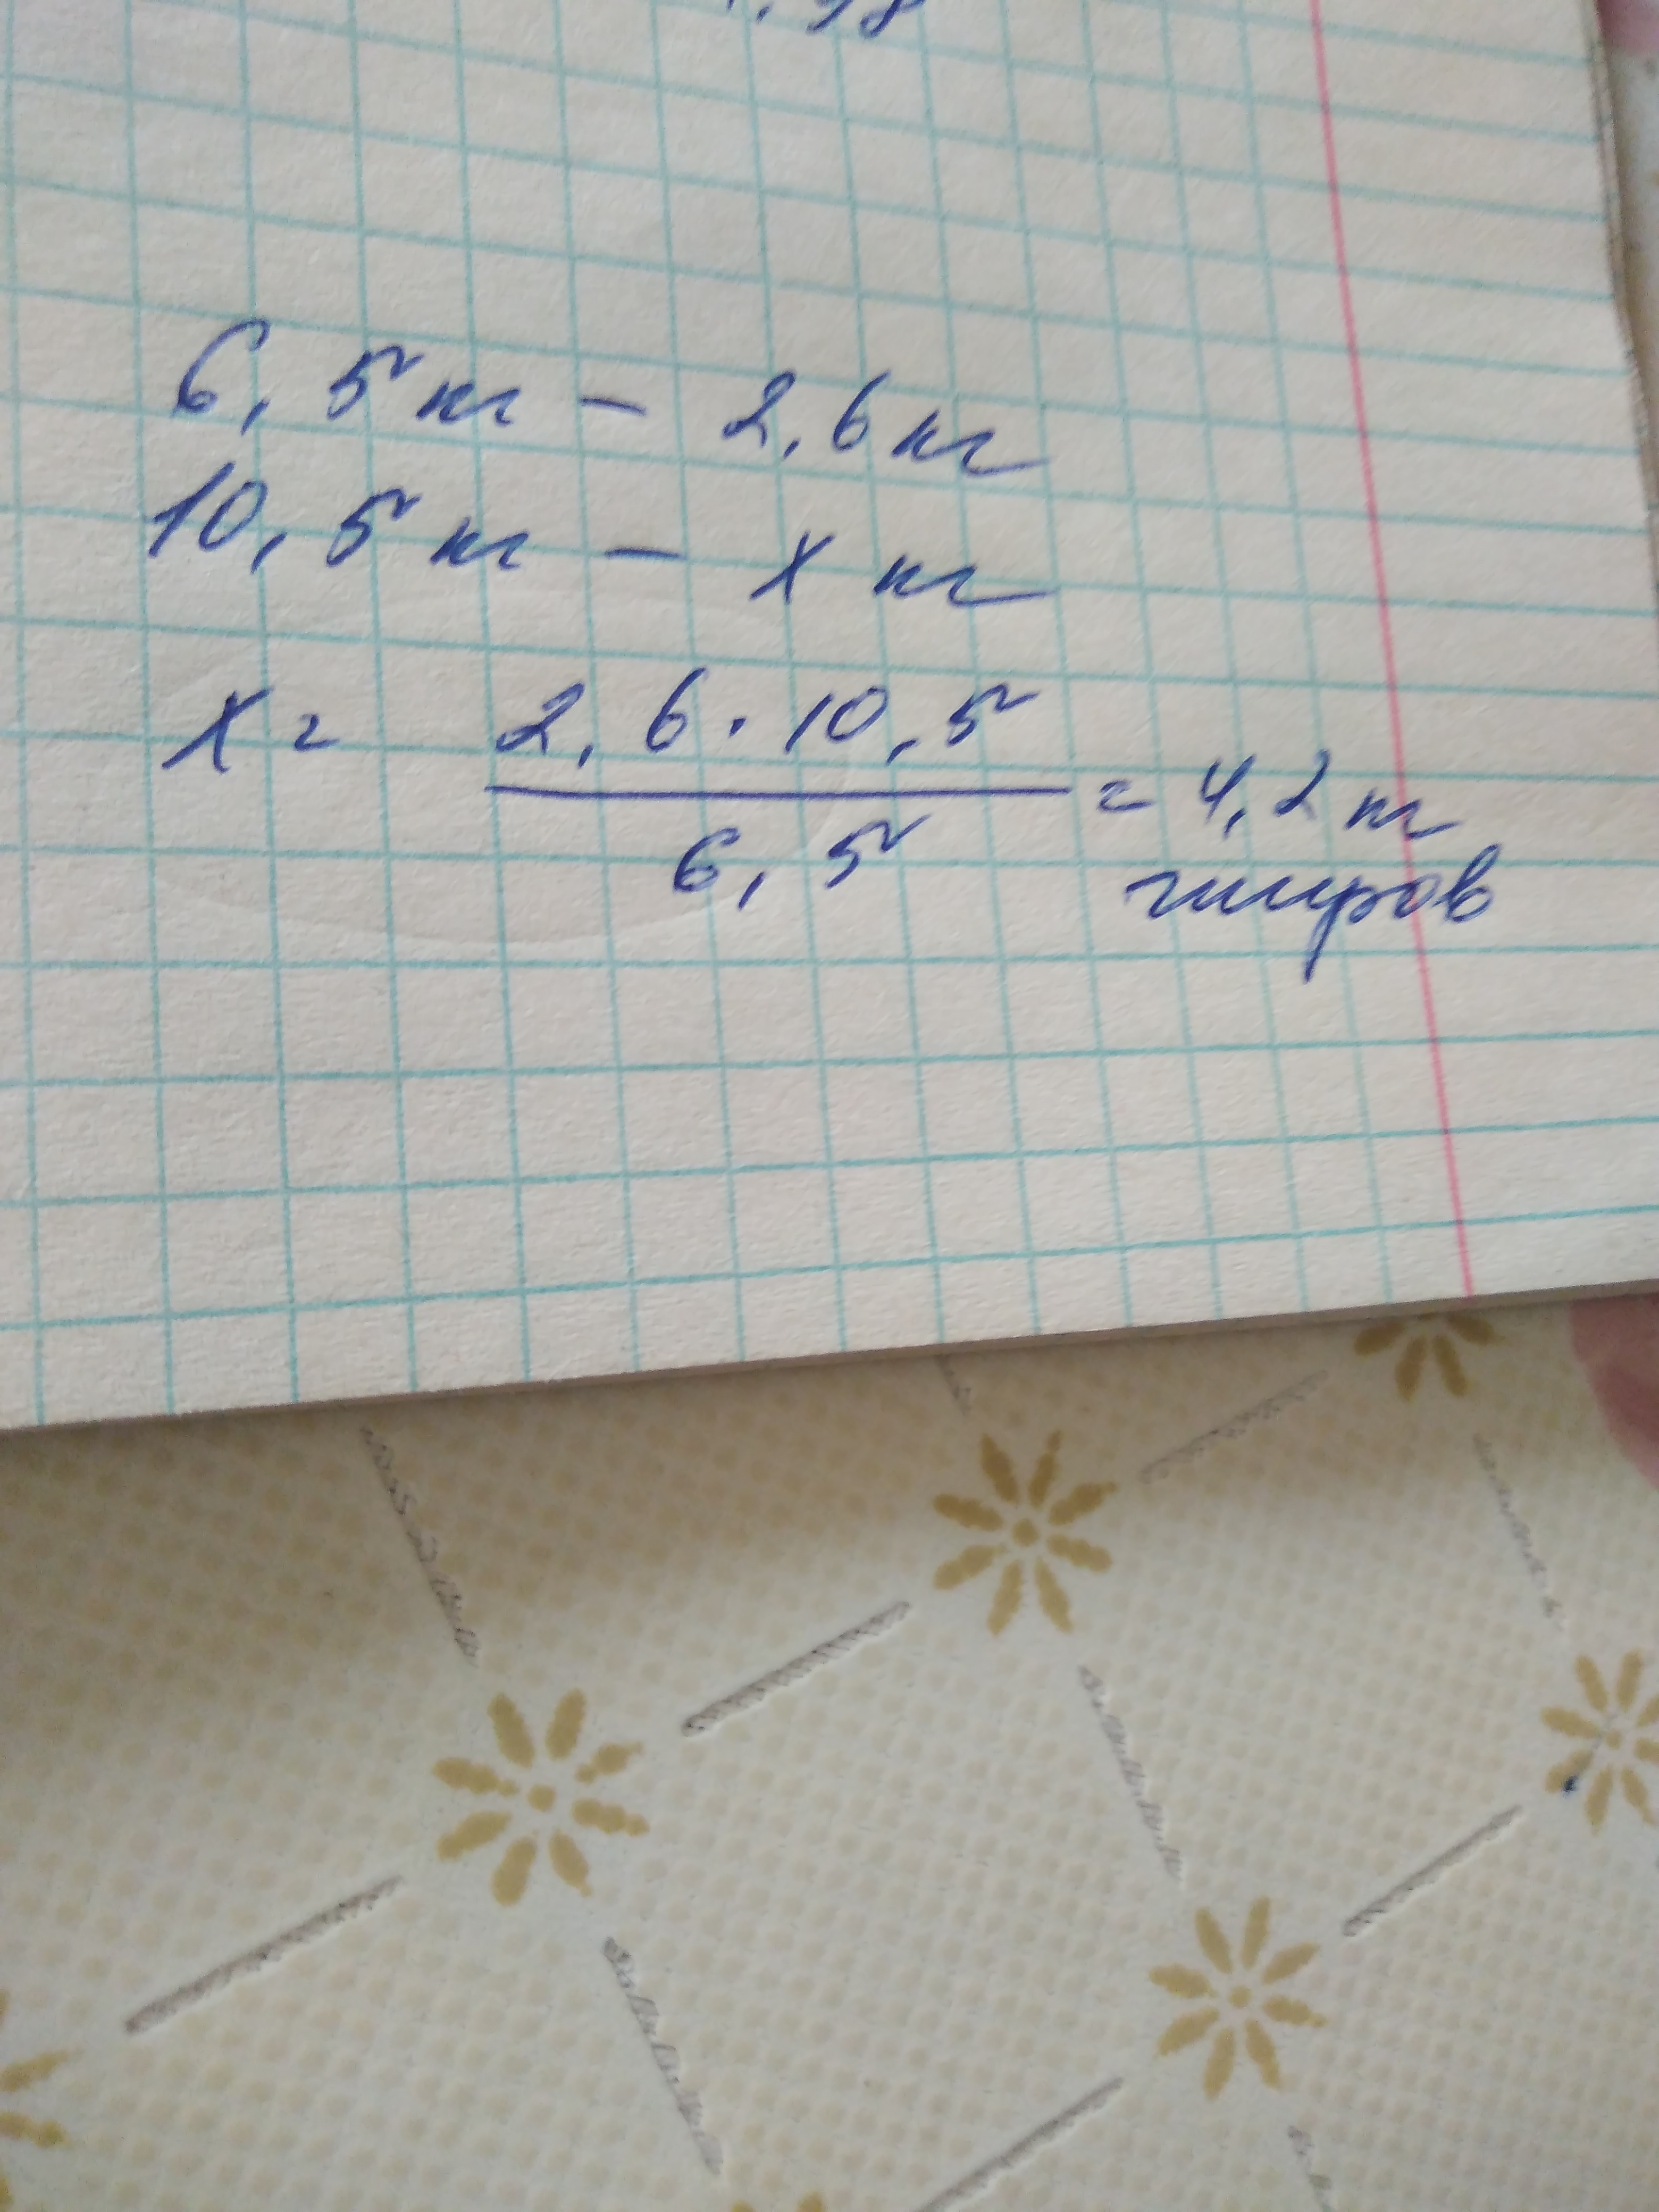 6,5 кг – 2,6 кг
10,5 кг – x кг
x = 2,6 · 10,5 / 6,5 = 4,2 кг
жиров